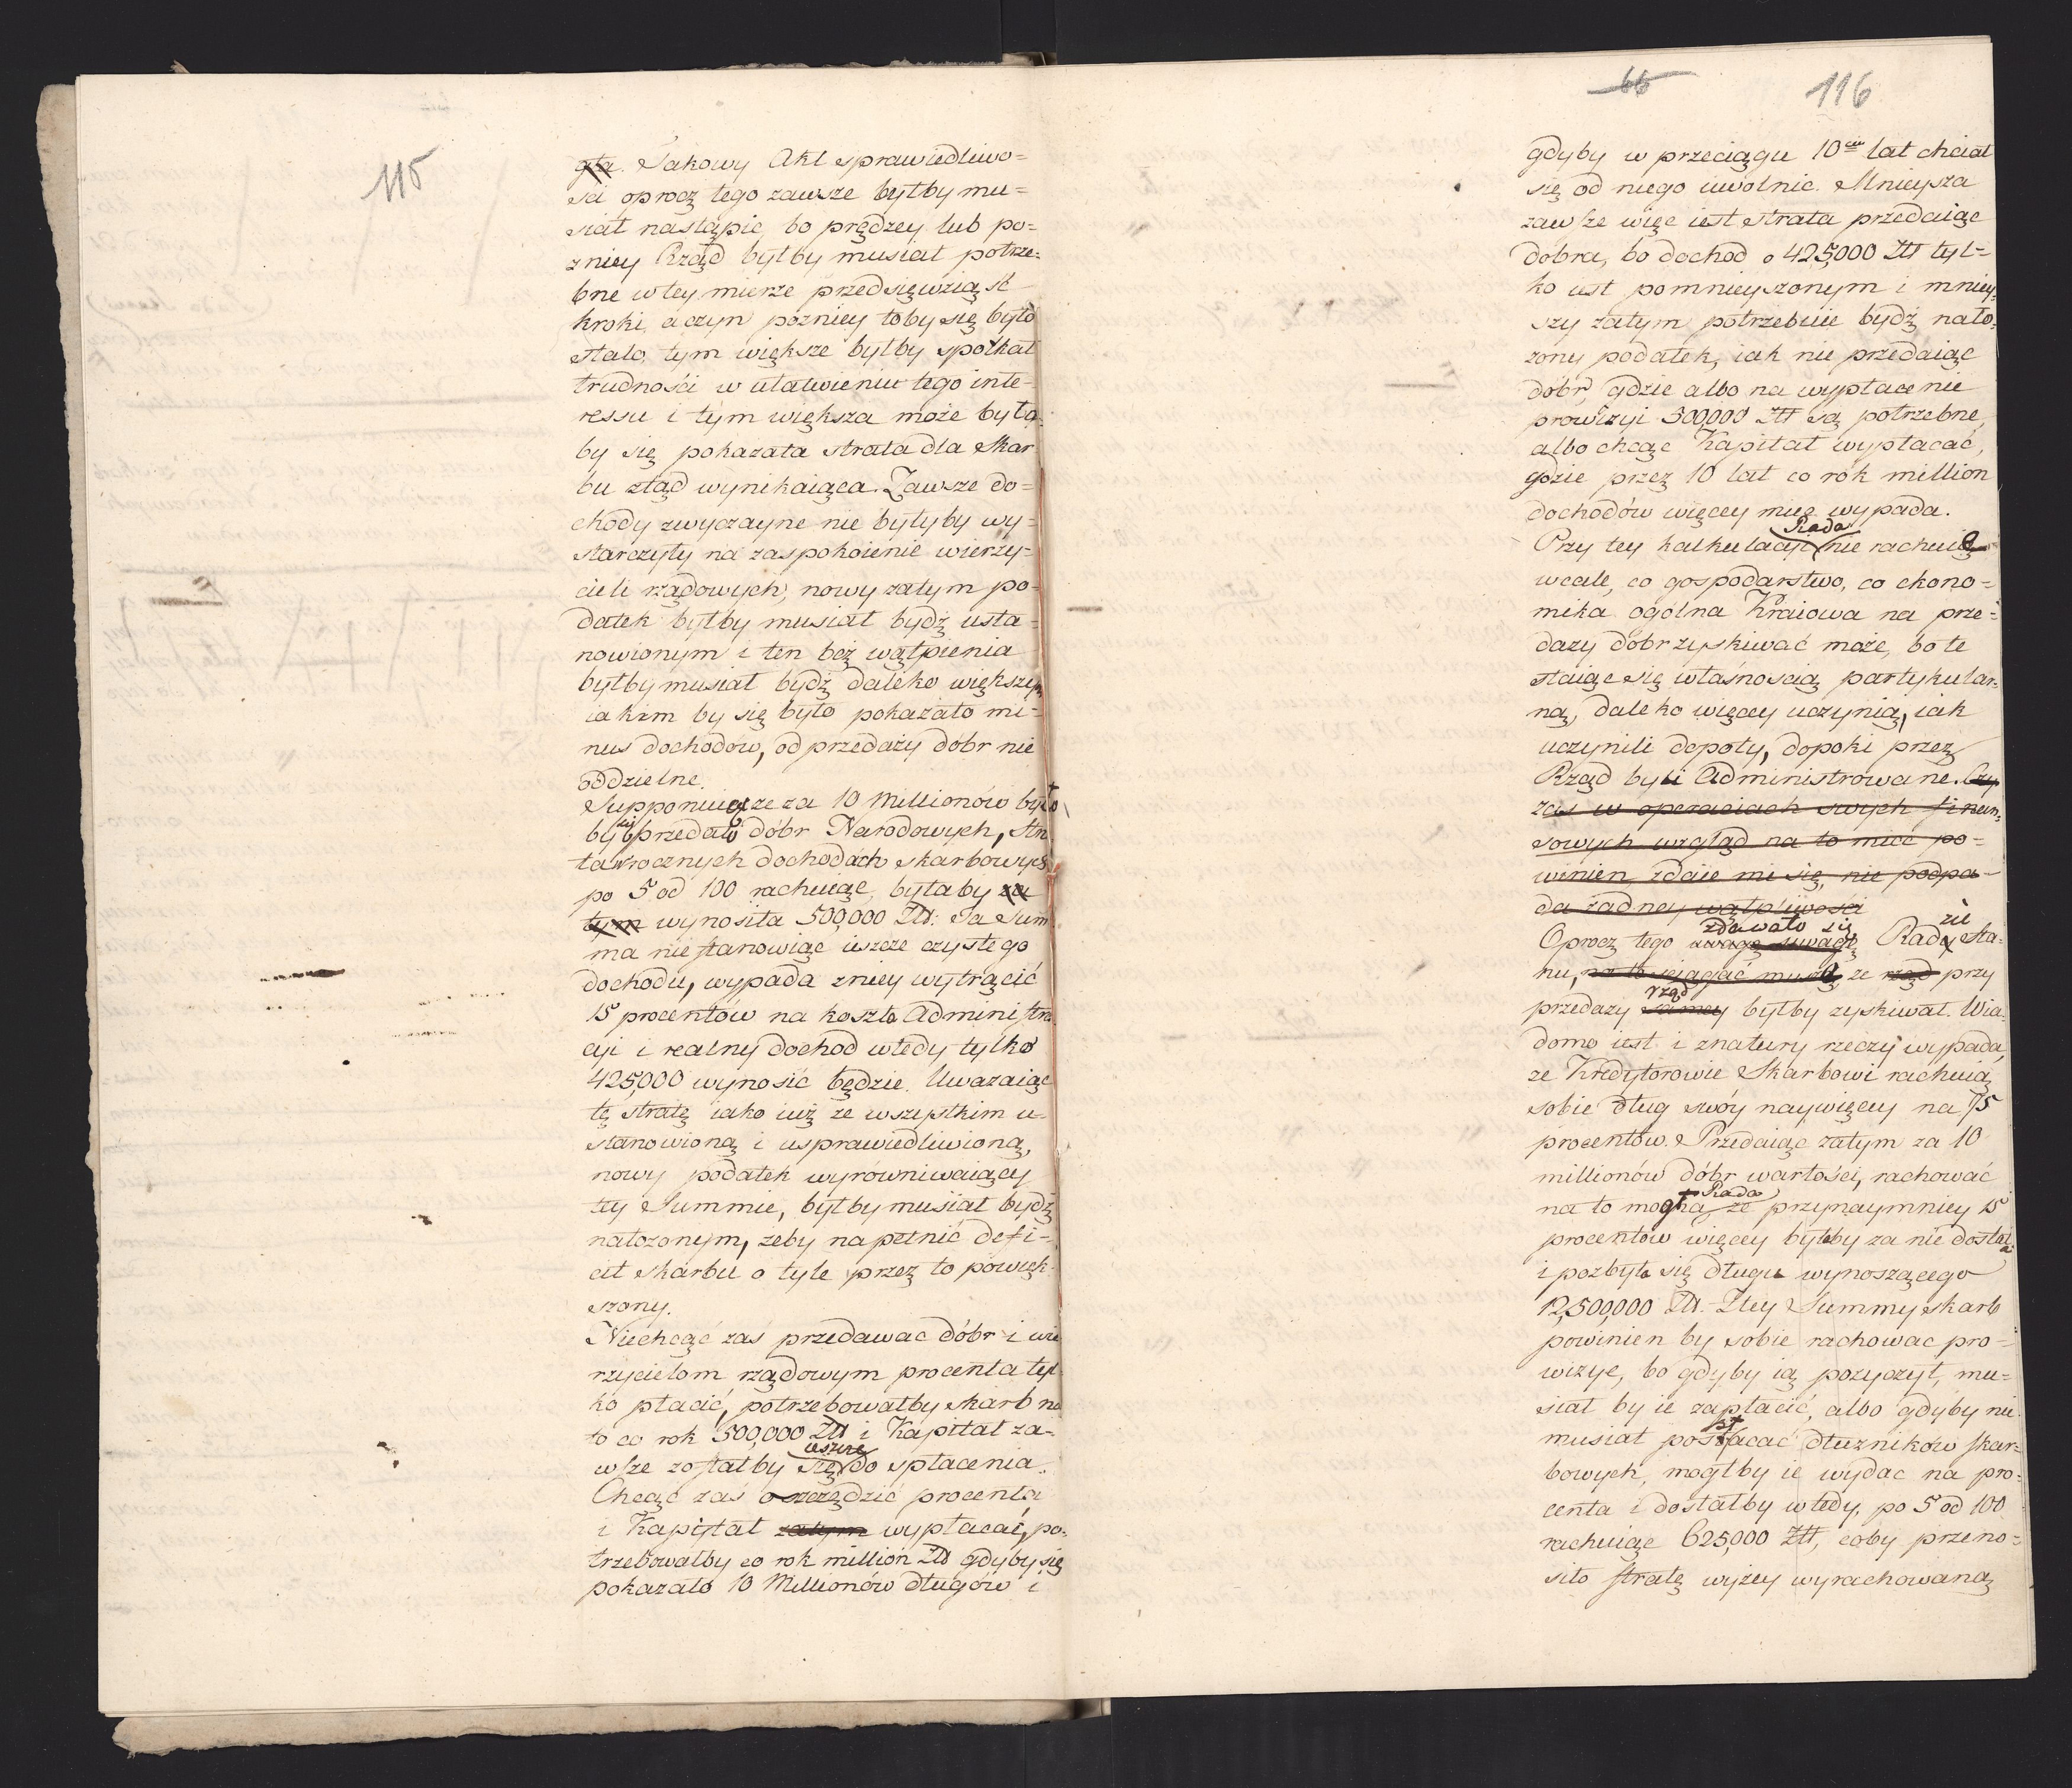 115
gła. Takowy Akt sprawiedliwo=
sci oprocz tego zawsze byłby mu=
siał nastąpić, bo prędzey lub po=
zniey Rząd byłby musiał potrze=
bne w tey mierze przedsięwziąść
kroki, a czym pózniey toby się było
stało, tym większe byłby spotkał
trudności w ułatwieniu tego inte=
ressu i tym większa może była=
by się pokazała strata dla Skar
bu ztąd wynikaiąca. Zawsze do=
chody zwyczayne nie byłyby wy=
starczyły na zaspokoienie wierzy=
cieli rządowych, nowy zatym po=
datek byłby musiał bydź usta=
nowionym i ten beż wątpienia
byłby musiał bydź daleko większym
iakim by się było pokazało mi=
nus dochodów, od przedaży dobr nie
oddzielne.
Supponuiąc ze za 10 Millionów było
by się przedało dóbr Narodowych, stra
ta w rocznych dochodach skarbowych
po 5 od 100 rachuiąc, byłaby za
tym wynosiła 500,000 Złł: Ta Sum
ma nie stanowiąc ieszcze czystego
dochodu, wypada zniey wytrącić
15 procentów na koszta Administra
cyi i realny dochod wtedy tylko
425,000 wynosić będzie. Uwazaiąc
tę stratę iako iuż ze wszystkim u=
stanowioną i usprawiedliwioną,
nowy podatek wyrówniwaiący
tey Summie, byłby musiał bydź
nałozonym, zeby napełnić defi=
cit skarbu o tyle przez to powięk=
szony.
Niechcąć zaś przedawac dóbr i wie
rzycielom rządowym procenta tyl=
ko płacić, potrzebowałby skarb na
to co rok 500,000 Złł i Kapitał za=
ieszcze
wsze zostałby się do spłacenia.
Chcąc zas oszczędzić procenta
i Kapitał zatym wypłacać, po=
trzebowałby co rok million Złł gdyby się
pokazało 10 Millionów długów i
66
116
gdyby w przeciągu 10ciu lat chciał
się od niego uwolnic. Mnieysza
zawsze więc iest strata przedaiąc
dobra, bo dochod o 425,000 Złł tyl=
ko iest pomnieyszonym i mniey=
szy zatym potrzebuie bydź nało=
zony podatek, iak nie przedaiąc
dóbr, gdzie albo na wypłacenie
prowizyi 500,000 Złł są potrzebne,
albo chcąc Kapitał wypłacać,
gdzie przez 10 lat co rok million
dochodów więcey mieć wypada.
Rada
Przy tey kalkulacyi nie rachuie
wcale, co gospodarstwo, co ekono=
mika ogolna Kraiowa na prze=
dazy dóbr zyskiwać może, bo te
staiąc się własnoscią partykular=
ną, daleko więcey uczynią, iak
uczynili dopoty, dopoki przez
Rząd byli Administrowane. Czy
zas w operaciach swych finan=
sowych wzgląd na to mieć po=
winien, zdaie mi się, nie podpa=
da żadney wątpliwosci
zdawało się zie
Oprocz tego uwagę Rady Sta=
nu, na to sciągać muszę, ze rząd przy
rząd
przedazy samey byłby zyskiwał. Wia=
domo iest i znatury rzeczy wypada,
ze Kredytorowie Skarbowi rachuią
sobie dług swóy naywięcey na 75
procentów. Przedaiąc zatym za 10
millionów dóbr wartości, rachować
Rada
na to mogła ze przynaymniey 15
procentów więcey byłoby za nie dostała
i pozbyła się długu wynoszącego
12,500,000 Złł. Ztey Summy skarb
powinien by sobie rachowac pro=
wizye, bo gdyby ią pozyczył, mu=
siał by ie zapłacić, albo gdyby nie
musiał pospłacać dłuzników skar=
bowych, mogłby ie wydac na pro=
centa i dostałby wtedy, po 5 od 100
rachuiąc 625,000 Złł, coby przeno=
siło stratę wyzey wyrachowaną